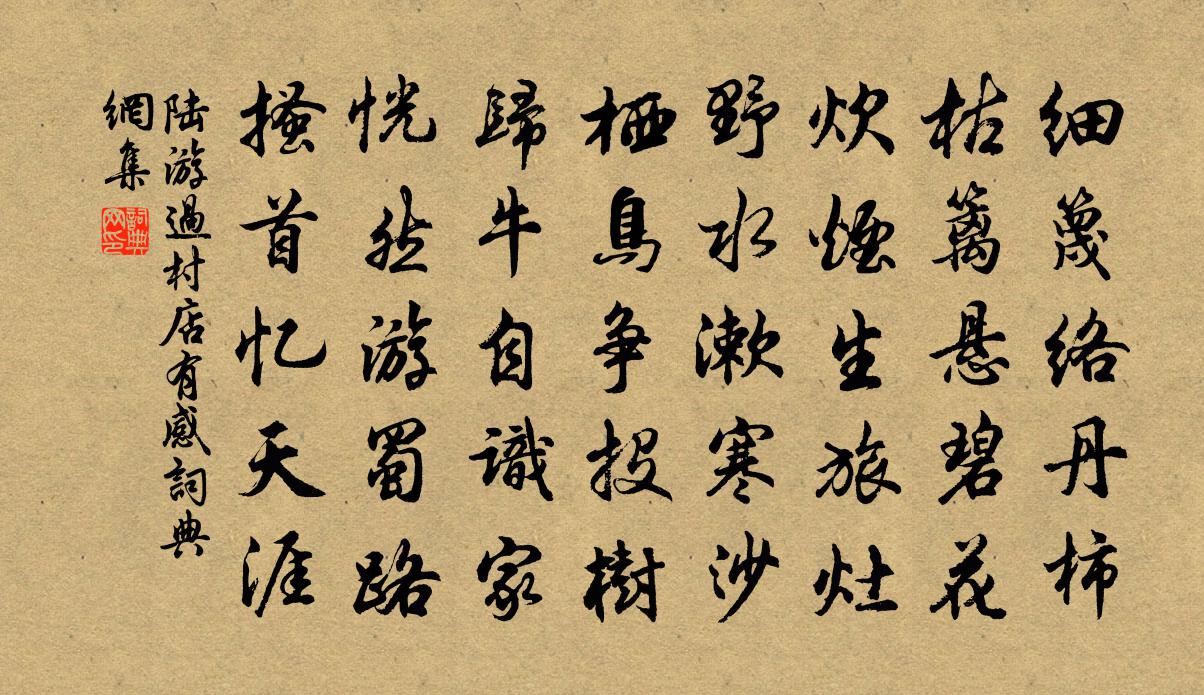 细蔑络丹柿
枯篱悬碧花
炊烟生旅灶
野水漱寒沙
栖鳥争投樹
歸牛自識家
恍然游蜀路
搔首忆天涯
陆游過村店有感詞典
網集
詞典网印